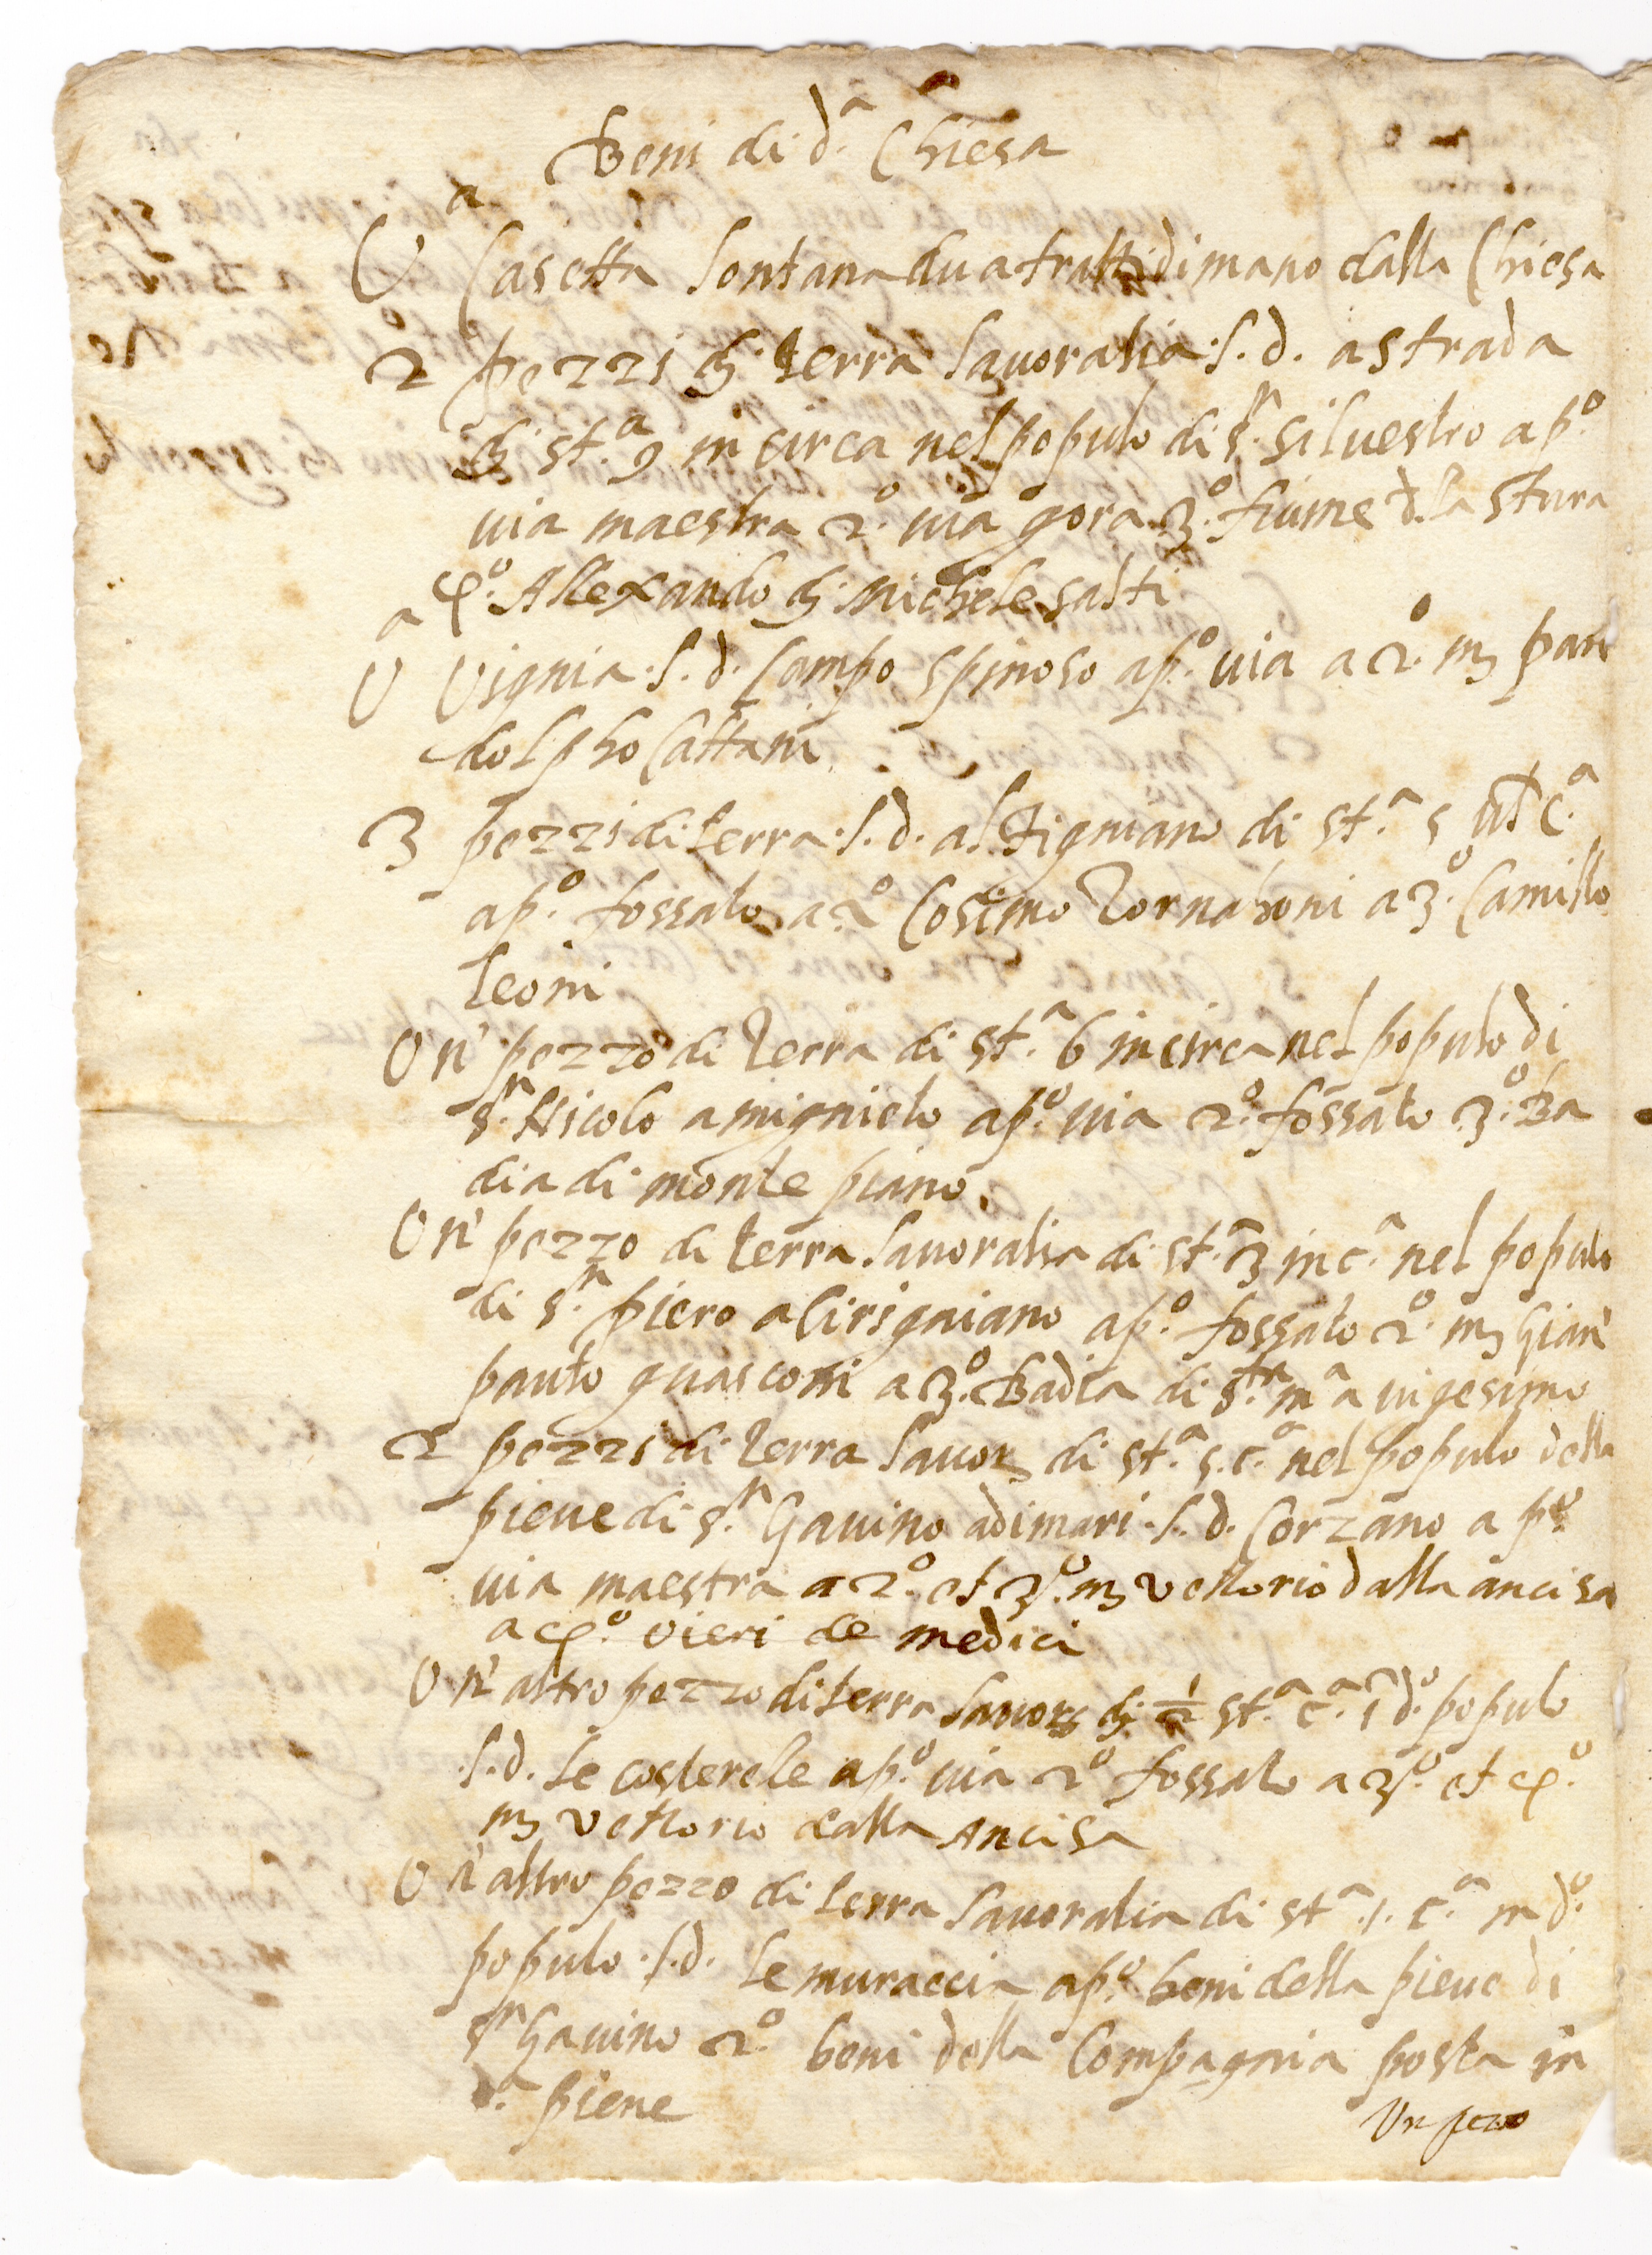 Beni di d.ª Chiesa
Uª Casetta lontana dua tratti di mano dalla Chiesa
2 pezzi di terra lauoratia .l.d. a strada
di st.ª 9 in circa nel populo di s.n siluestro a p.º
uia maestra 2.º uia gora 3.º fiume d.la stura
4.º Allexandro di Michele salti
Uª Uignia .l.d. Campo spinoso a p.º uia a 2.º m pan
dolpho Cattani
3 pezzi di terra .l.d. al tigniano di st.ª 5 c.ª
a p.º fossato a 2.º Cosimo Tornaboni a 3.º Camillo
leoni
Un' pezzo di terra di st.ª 6 in circa nel populo di
s.n Nicolo a mignielo a p.º uia 2.º fossato 3.º Ba
dia di monte piano.
Un' pezzo di terra lauoratia di st.ª 3 in c.ª nel populo
di s.n piero a Cirigniano a p.º fossato 2.º m Gian'
paulo guasconi a 3.º Badia di s.ta m.ª a uigesimo
2 pezzi di terra lauor di st.ª 5. c.ª nel populo della
pieue di s.n Gauino adimari .l.d. Corzano a p.º
uia maestra a 2.º et 3.º m vettorio dalla ancisa
a 4.º uieri de medici
Un' altro pezzo di terra lauor di 1/2 st.ª c.ª i d.º populo
.l.d. le costerele a p.º uia 2.º fossato a 3.º et 4.º
m vettorio dalla Ancisa
Un' altro pezzo di terra lauoratia di st.ª .1. c.ª in d.º
populo .l.d. le muraccia a p.º beni della pieue di
s.n Gauino 2.º beni della Compagnia posta in
d.ª pieue
Un pezzo